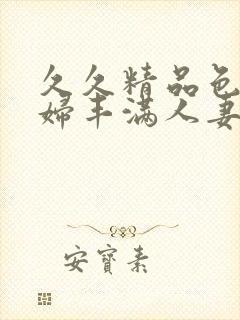 久久精品色
婦丰满人妻
安寶素